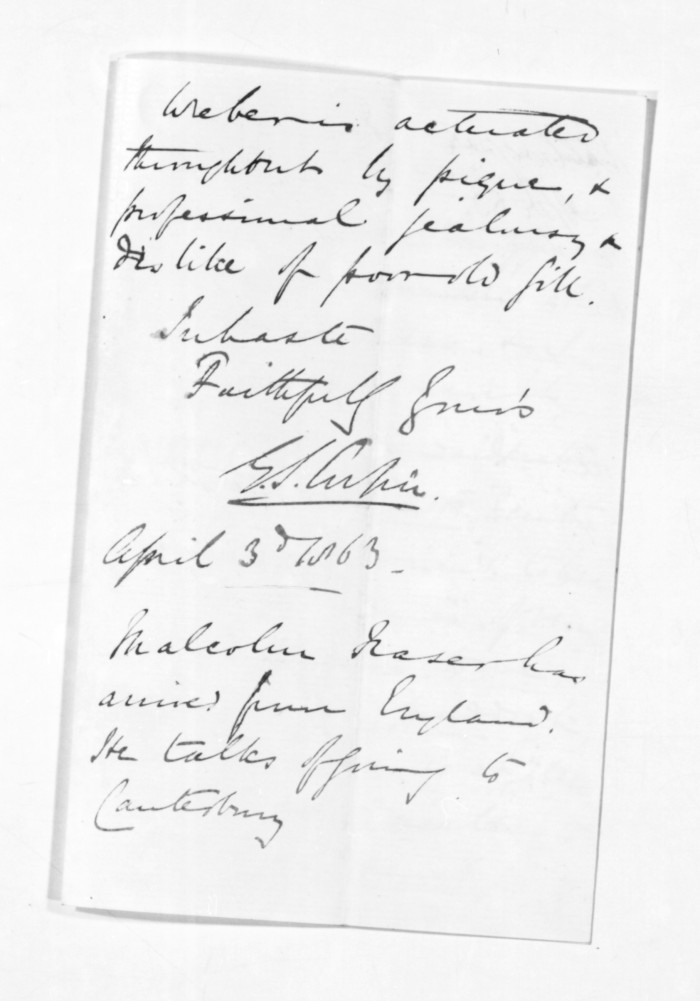 Weber is actuated
throughout by pique, &
professional jealousy &
dislike of poor old Gill.
In haste
Faithfully Yours
G.S. Cooper.
April 3d 1863
Malcolm Fraser has
arrived from England.
He talks of going to
Canterbury